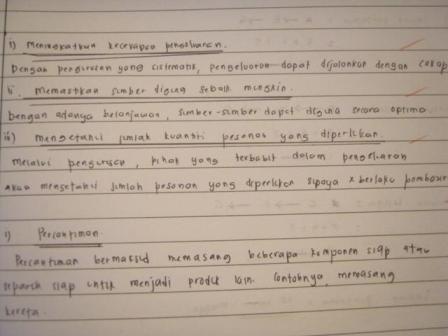 i) Meningkatkan kecekapan pengeluaran.
Dengan pengurusan yang sistematik, pengeluaran dapat dijalankan dengan cekap
ii. Memastikan sumber diguna sebaik mungkin.
Dengan adanya belanjawan, sumber-sumber dapat diguna secara optima
iii) mengetahui jumlah kuantiti pesanan yang diperlukan.
melalui pengurusan, pihak yang terbabit dalam pengeluaran
akan mengetahui jumlah pesanan yang diperlukan supaya x berlaku
i) Percantuman
Percantuman bermaksud memasang beberapa komponen siap atau
separuh siap untuk menjadi produk lain. Contohnya, memasang
kereta.